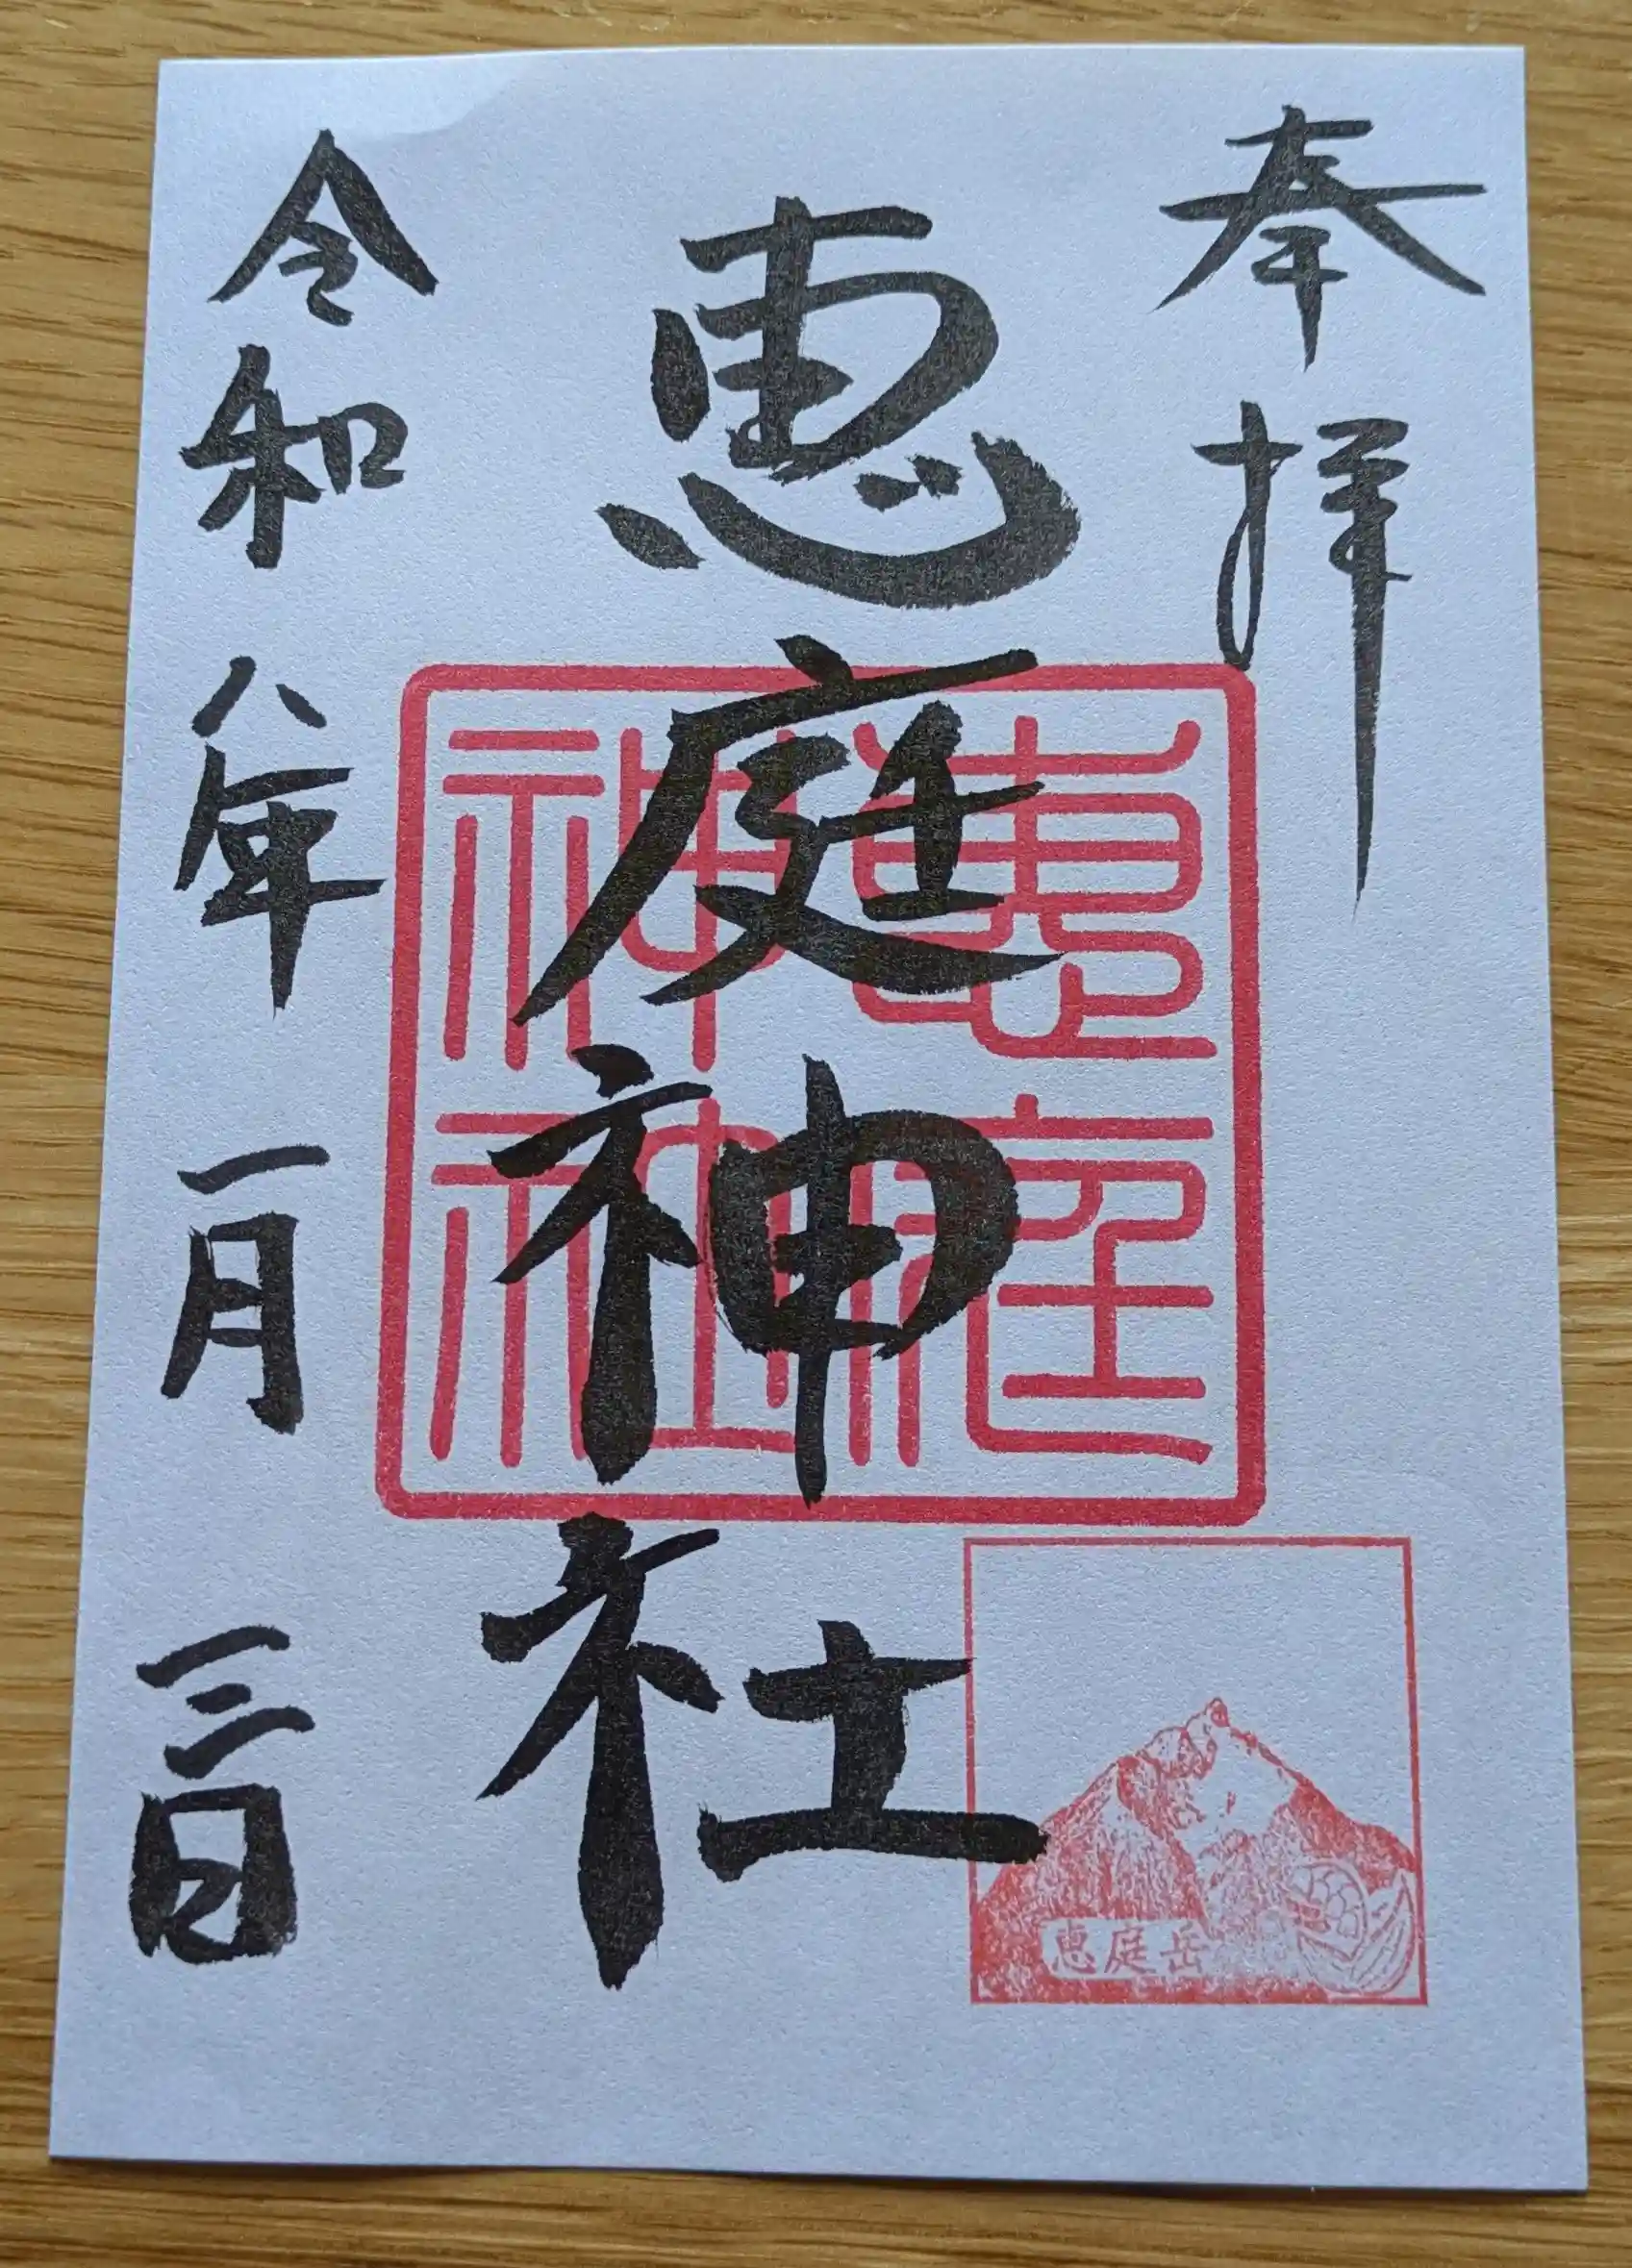 奉拝
恵庭神社
恵庭
神社
恵庭岳
令和八年一月三日